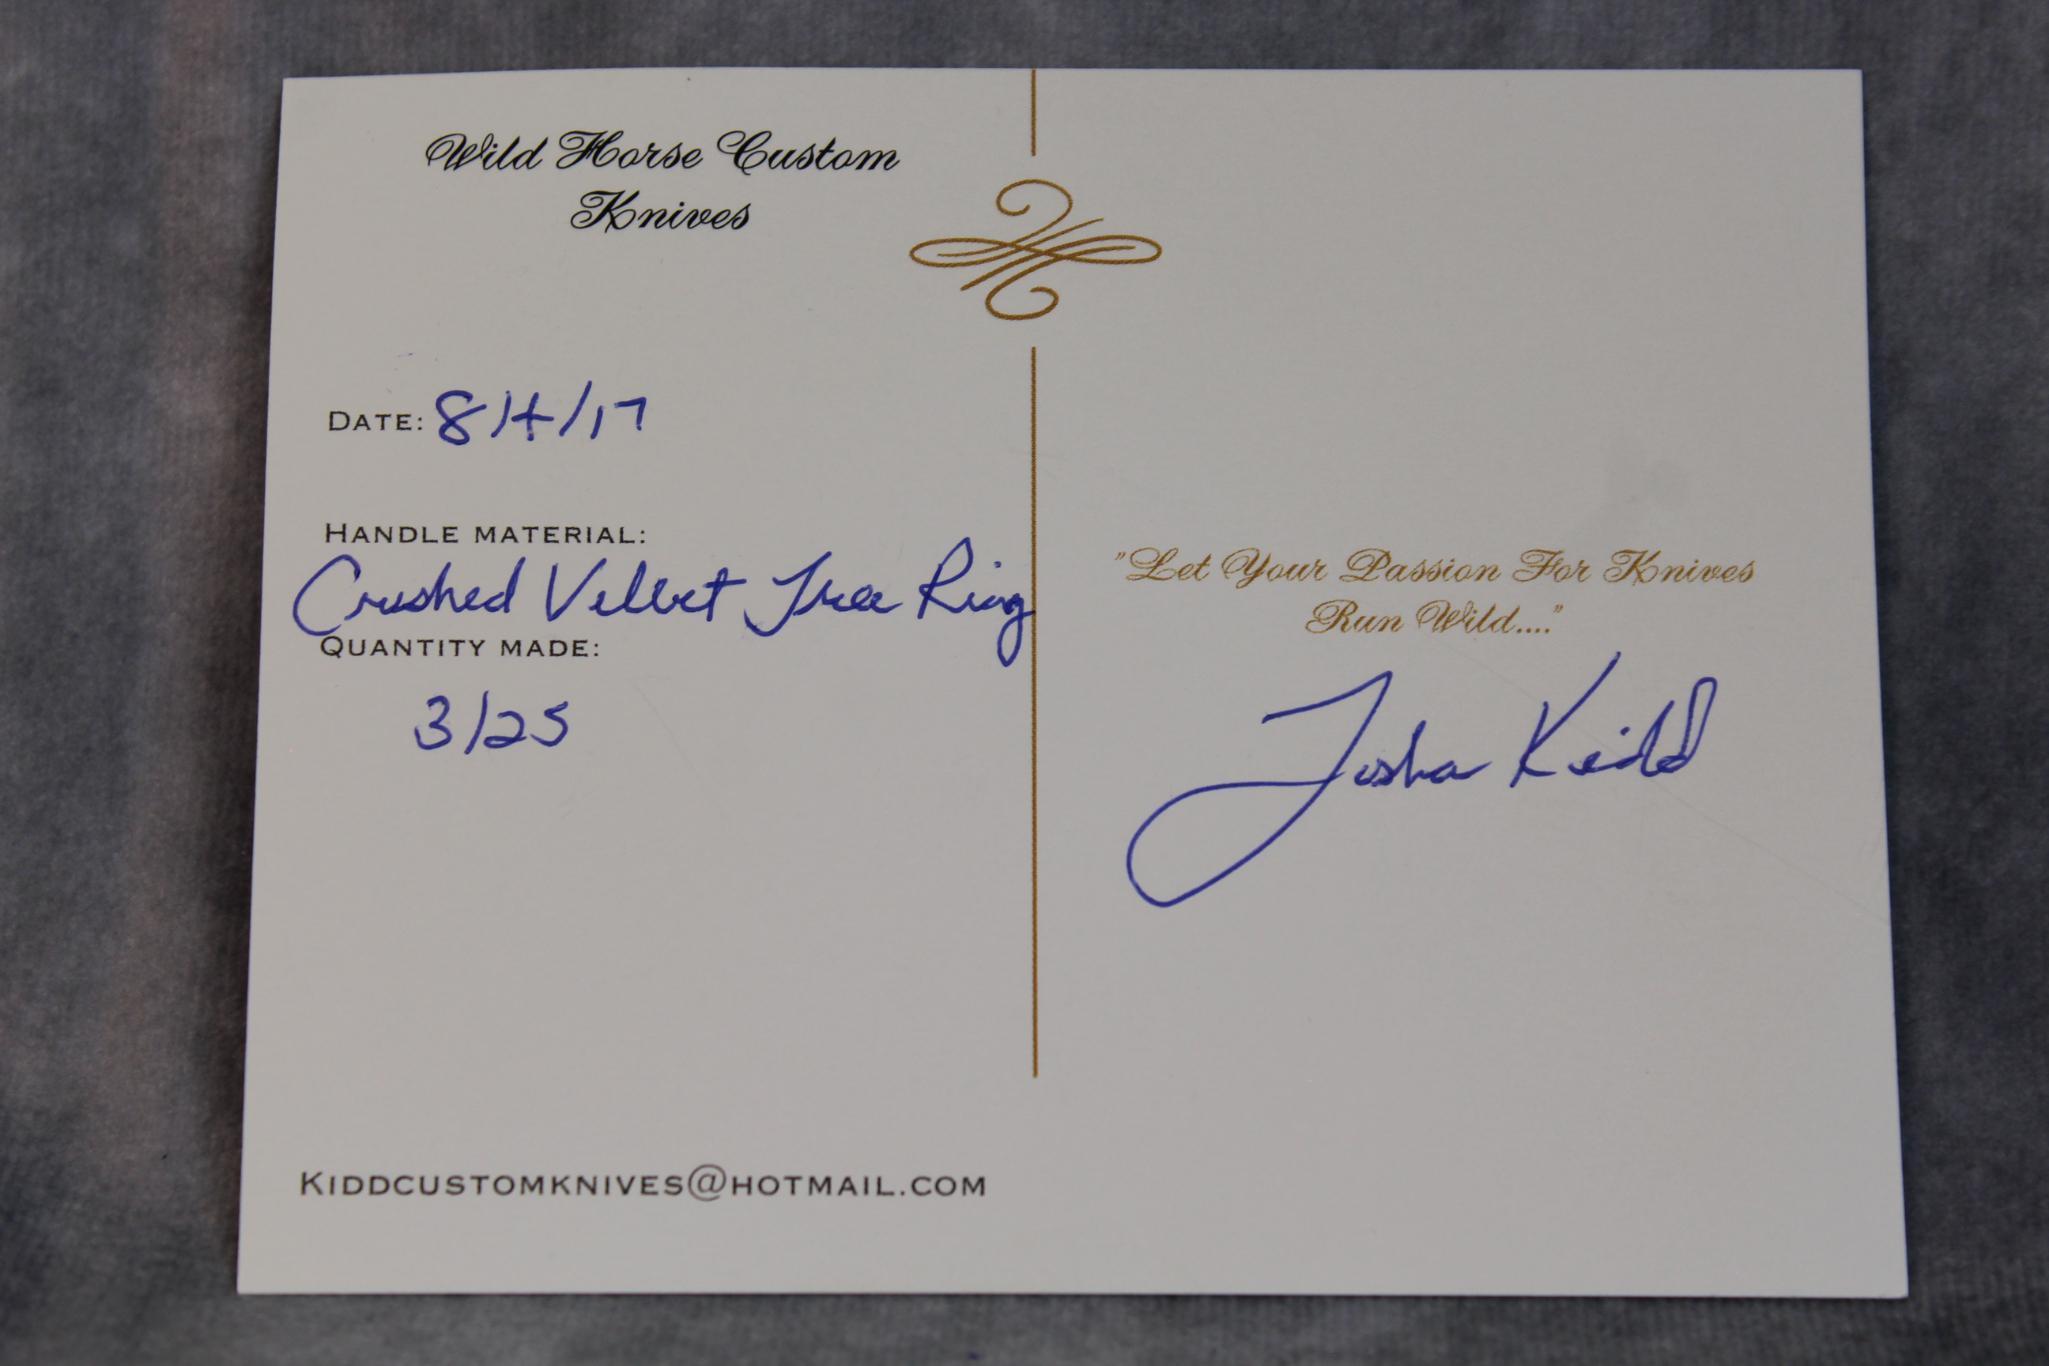 Wild Horse Custom
Knives
DATE: 8/4/17
HANDLE MATERIAL:
Crushed Velvet Tree Ring
QUANTITY MADE:
3/25
KIDDCUSTOMKNIVES@HOTMAIL.COM
"Let Your Passion For Knives
Run Wild...."
Josha Kidd